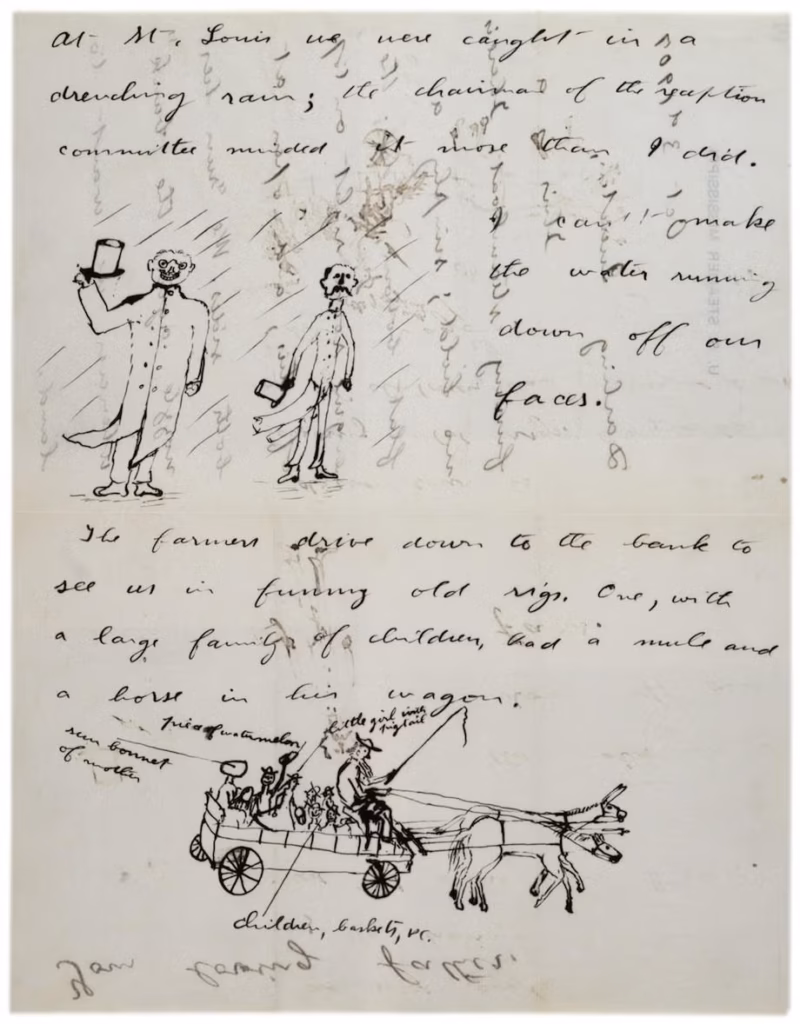 At St. Louis we were caught in a
drenching rain; the chairman of the reception
committee minded it more than I did.
I can't make
the water running
down off our
faces.
The farmers drive down to the bank to
see us in funny old rigs. One, with
a large family of children, had a mule and
a horse in his wagon.
sun bonnet
of mother
piece of watermelon
little girl with
pigtail
children, baskets, &c.
Your loving father.